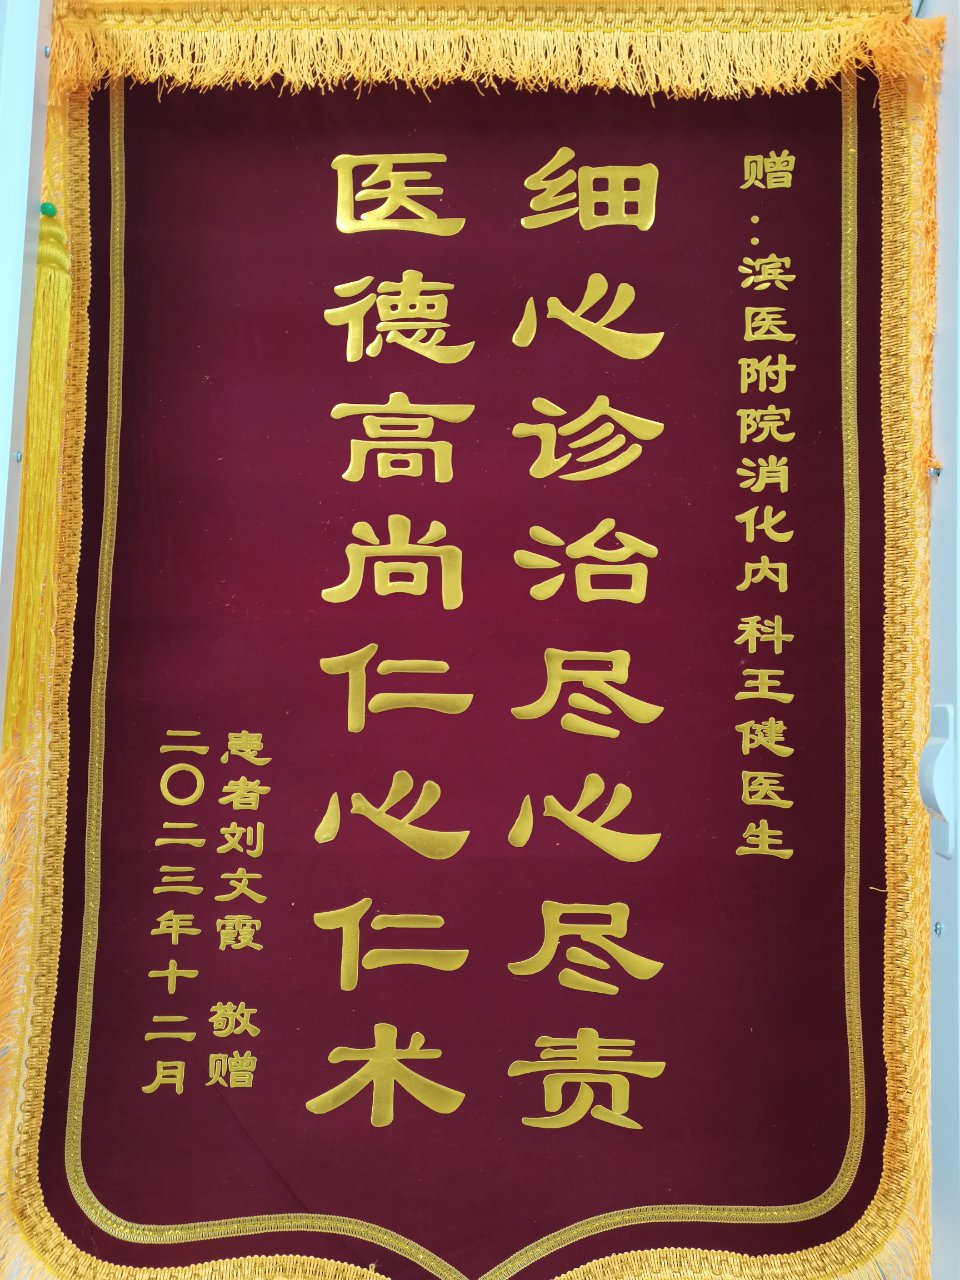 赠：滨医附院消化内科王健医生
细心诊治尽心尽责
医德高尚仁心仁术
患者刘文霞 敬赠
二〇二三年十二月